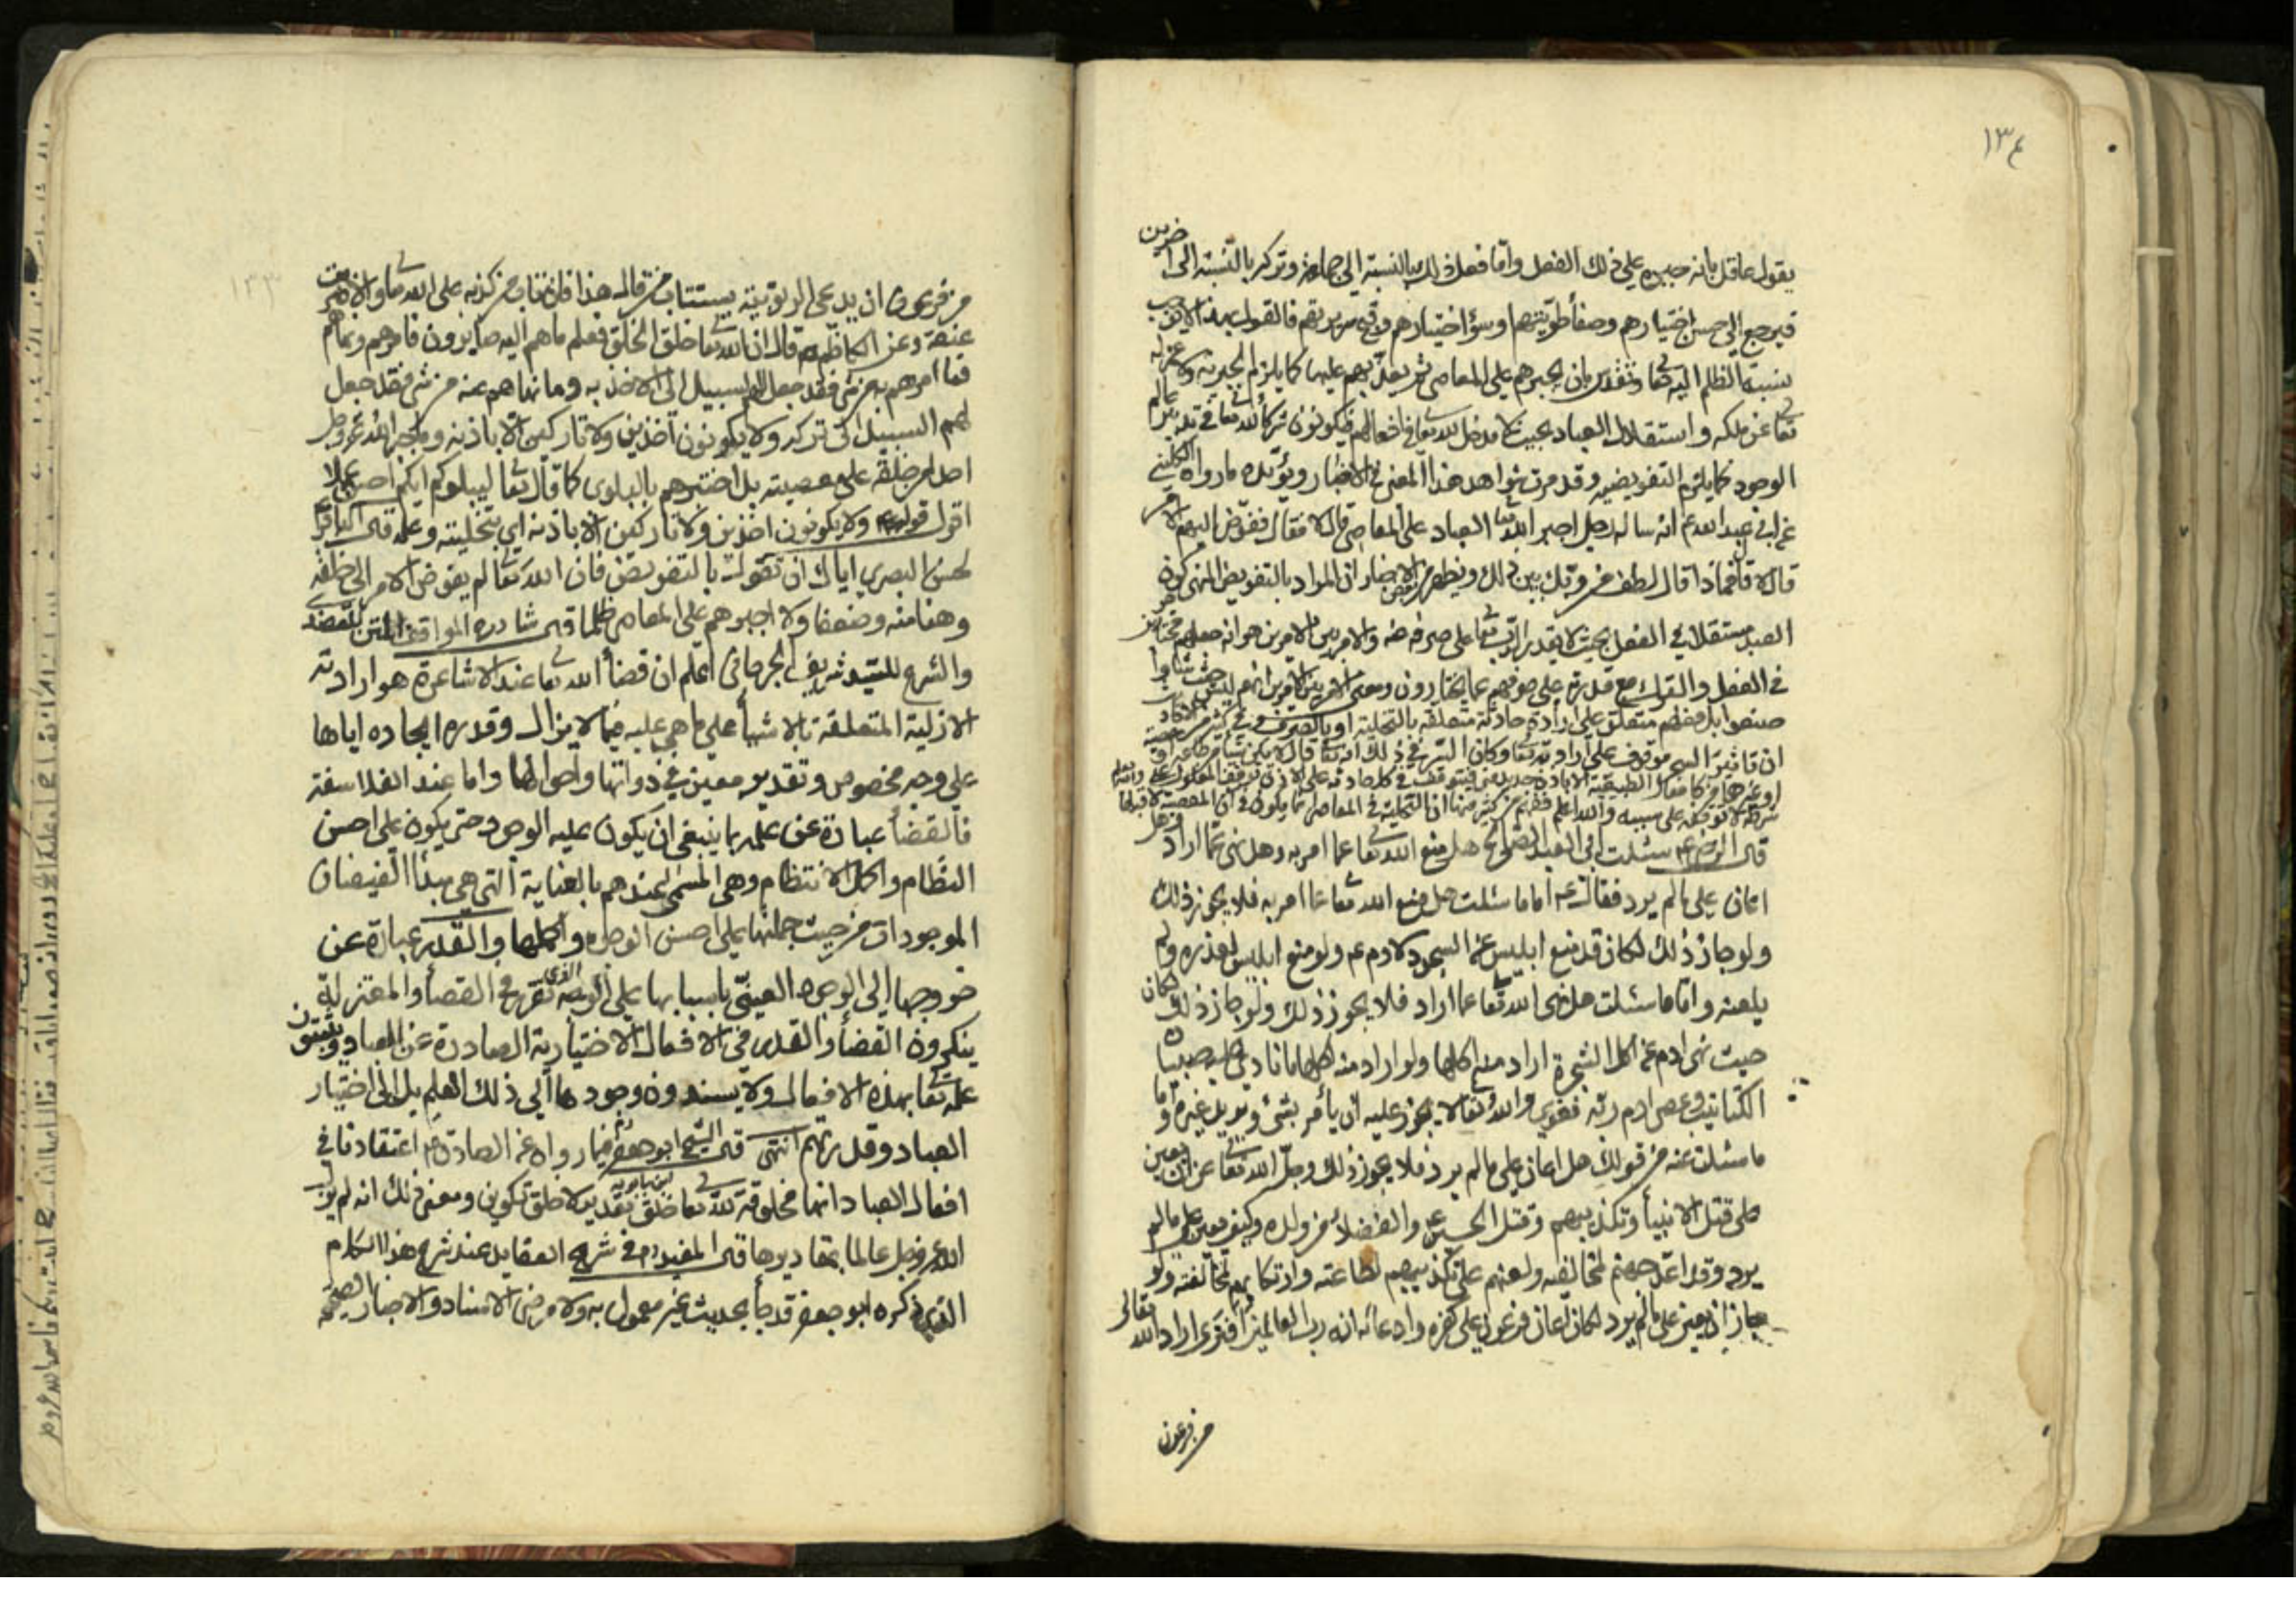 ١٣٤
يقول عاقل بانه جبره على ذلك الفعل وامّا فعل ذلك بالنسبة الى جماعة وتركه بالنسبة الى اخرين
فيرجع الى حسن اختيارهم وصفاء طويّتهم او سوء اختيارهم وقبح سريرتهم فالقول بهذا لا يوجب
نسبة الظلم اليه تعا وتقدس بان يجبرهم على المعاصى ثم يعذّبهم عليها كما يلزم الجبرية ولا عزله
تعا عن ملكه واستقلال العباد بحيث لا مدخل لله تعا فى افعالهم فيكونون شركاء لله تعا فى تدبير عالم
الوجود كما يلزم التفويضية وقد مرت شواهد هذا المعنى فى الاخبار ويؤيّده ما رواه الكلينى
عن ابى عبد الله ع انه ساله رجل اجبر الله تعا العباد على المعاصى قال لا فقال ففوّض اليهم الامر
قال لا قال فماذا قال لطف من ربّك بين ذلك ويظهر من بعض الاخبار ان المراد بالتفويض المنهى كون
العبد مستقلا فى الفعل بحيث لا يقدر الرّب تعا على صرفه عنه والامر بين الامرين هو انه جعلهم مختارين
فى الفعل والترك مع قدرته على صرفهم عما يختارون ومعنى الامر بين الامرين انهم ليس حيث شاؤا
صنعوا بل فعلهم متعلق على ارادة حادثة متعلقة بالتخلية او بالصرف وفى كثير من الاحاديث
ان تاثير السحر موقوف على ارادته تعا وكان السّرّ فى ذلك انه تعا قال لا يكون شيئا من طاعة او معصية
او غيرهما كافعال الطبيعية الا باذن جديد منى فيتوقف كل حادثة على الاذن توقف المعلول على
شرطه لا توقفه على سببه والله اعلم
قال الرضا ع سئلت ابى العبد الصالح هل منع الله تعا عما امر به وهل نهى عمّا اراد وهل
اعان على ما لم يرد فقال ع اما ما سئلت هل منع الله تعا عما امر به فلا يجوز ذلك
ولو جاز ذلك لكان قد منع ابليس عن السجود لادم ع ولو منع ابليس لعذره ولم
يلعنه وامّا ما سئلت هل نهى الله تعا عما اراد فلا يجوز ذلك ولو جاز ذلك لكان
حيث نهى ادم عن اكل الشجرة اراد منه اكلها ولو اراد منه اكلها ما نادى عليه صبيان
الكتاتيب وعصى ادم ربّه فغوى والله تعالى لا يجوز عليه ان يأمر بشئ ويريد غيره وامّا
ما سئلت عنه من قولك هل اعان على ما لم يرد فلا يجوز ذلك وجلّ الله تعا عن ان يعين
على قتل الانبياء وتكذيبهم وقتل الحسين ع والفضلاء من ولده وكيف يعين على ما لم
يرد وقد اعدّ جهنم لمخالفيه ولعنهم على تكذيبهم لطاعته وارتكابهم لمخالفته ولو
جاز ان يعين على ما لم يرد لكان اعان فرعون على كفره وادعائه انه رب العالمين افترى اراد الله تعالى
من فرعون
١٣٣
من فرعون ان يدعى الربوبيّة يستتاب من قال هذا فان تاب من كذبه على الله تعا والا ضربت
عنقه وعن الكاظم ع قال ان الله تعا خلق الخلق فعلم ما هم اليه صايرون فامرهم ونهاهم
فما امرهم به من شئ فقد جعل لهم السبيل الى الاخذ به وما نهاهم عنه من شئ فقد جعل
لهم السبيل الى تركه ولا يكونون اخذين ولا تاركين الا باذنه وما جبر الله عز وجل
احدا من خلقه على معصيته بل اختبرهم بالبلوى كما قال تعا ليبلوكم ايكم احسن عملا
اقول قوله ع ولا يكونون اخذين ولا تاركين الا باذنه اى بتخليته وعلمه قال الباقر ع
لحسن البصرى اياك ان تقول بالتفويض فان الله تعا لم يفوض الامر الى خلقه
وهنا منه وضعفا ولا اجبرهم على المعاصى ظلما قال شارح المواقف المتن للعضدى
والشرح للسّيد شريف الجرجانى اعلم ان قضاء الله تعا عند الاشاعرة هو ارادته
الازلية المتعلقة بالاشياء على ما هى عليه فيما لا يزال وقدره ايجاده اياها
على وجه مخصوص وتقدير معين فى ذواتها واحوالها واما عند الفلاسفة
فالقضاء عبارة عن علمه بما ينبغى ان يكون عليه الوجود حتى يكون على احسن
النظام واكمل الانتظام وهى المسمى عندهم بالعناية التى هى مبدأ الفيضان
الموجودات من حيث جملتها على احسن الوجوه واكملها والقدر عبارة عن
خروجها الى الوجود العينىّ باسبابها على الوجه الذى تقرر فى القضاء والمعتزلة
ينكرون القضاء والقدر فى الافعال الاختيارية الصادرة عن العباد ويثبتون
علمه تعا بهذه الافعال ولا يسندون وجودها الى ذلك العلم بل الى اختيار
العباد وقدرتهم انتهى قال الشيخ ابو جعفر ره فيما رواه عن الصادق ع اعتقادنا فى
ابن بابويه
افعال العباد انها مخلوقة لله تعا خلق تقدير لا خلق تكوين ومعنى ذلك انه لم يزل
الله عز وجل عالما بمقاديرها قال المفيد ره فى شرح العقايد عند شرح هذا الكلام
الذى ذكره ابو جعفر قد جاء بحديث غير معمول به ولا مرضى الاسناد والاخبار الصحيحة